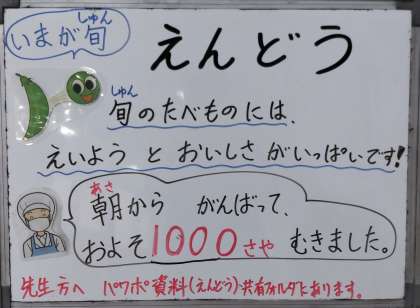 いまが旬
しゅん
えんどう
しゅん
旬のたべものには、
えいようとおいしさがいっぱいです!
あさ
朝から がんばって、
およそ1000さや むきました。
先生方へ パワポ資料(えんどう)共有フォルダにあります。